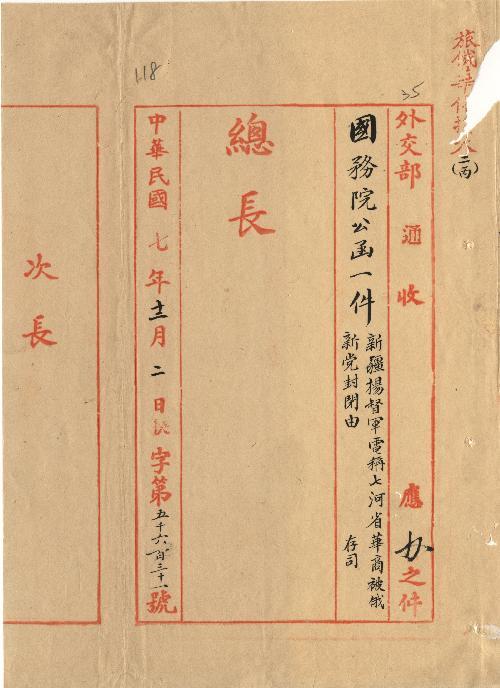 旅俄華
(二丙)
35
外交部 通 收 應办之件
國務院公函一件 新疆楊督軍電稱七河省華商被俄
新党封閉由 存司
總長
118
中華民國 七年十二月 二 日 字第五千六百三十一號
次長